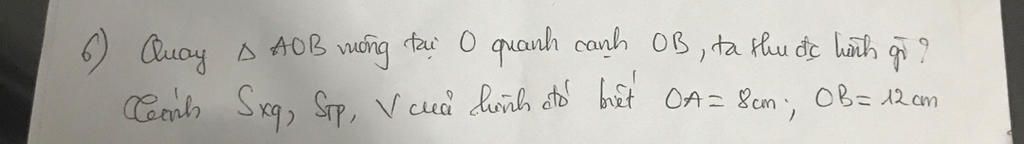 6) Quay Δ AOB vuông tại O quanh cạnh OB, ta thu đc hình gì?
Tính Sxq, STP, V của hình đó biết OA = 8cm; OB = 12 cm